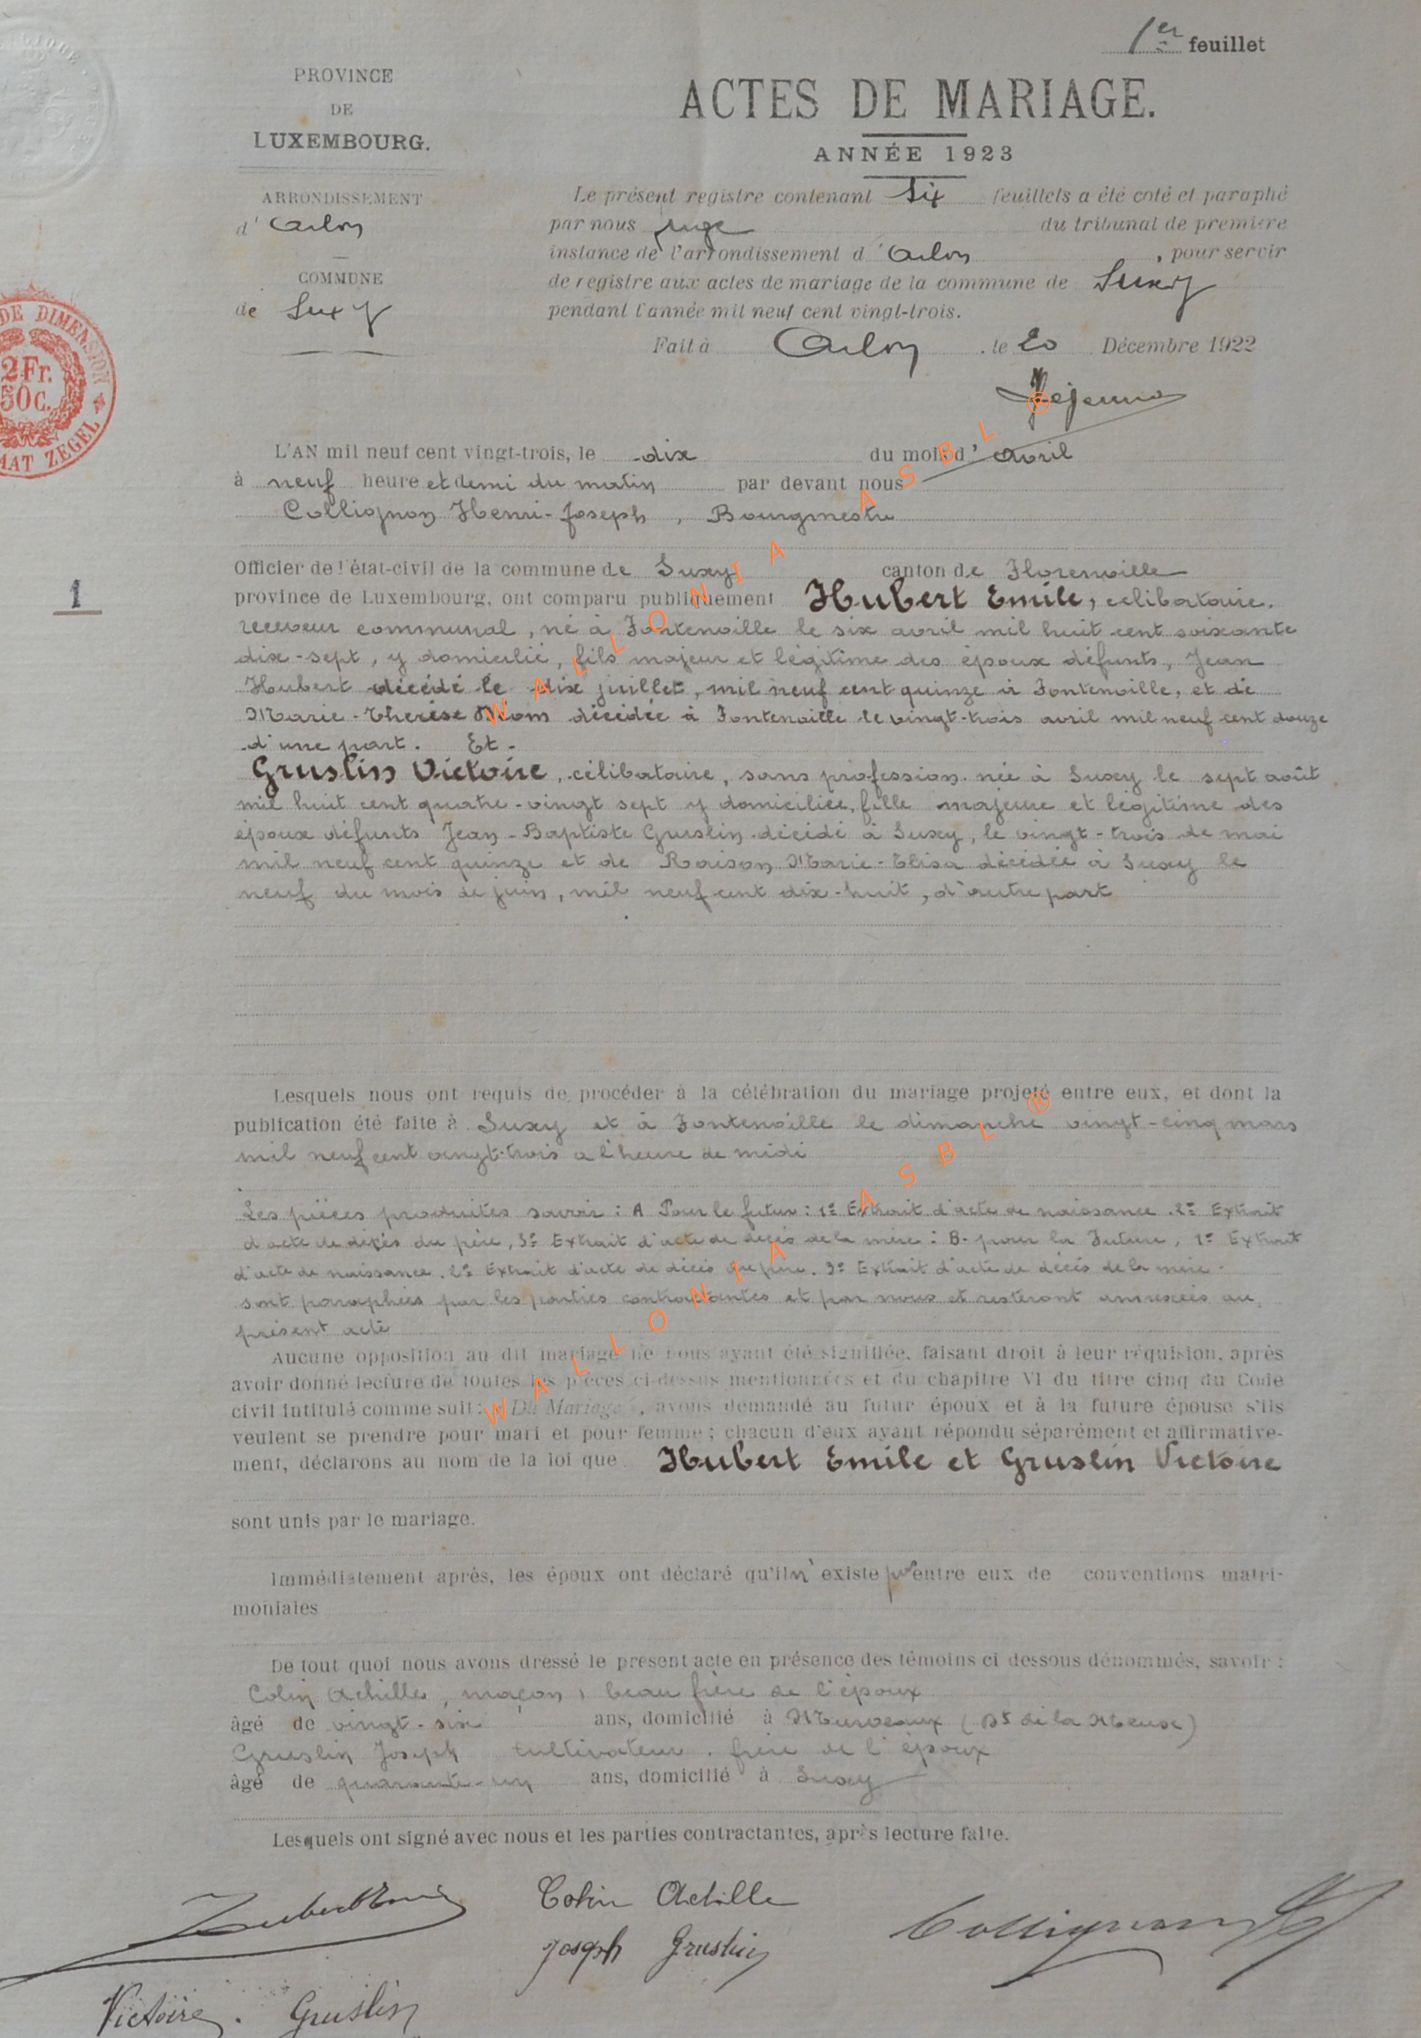 1er feuillet
PROVINCE
DE
LUXEMBOURG.
ARRONDISSEMENT
d' Arlon
COMMUNE
de Suxy
DE DIMENSION
2Fr.
50c.
MAT ZEGEL
ACTES DE MARIAGE.
ANNÉE 1923
Le présent registre contenant six feuillets a été coté et paraphé
par nous juge du tribunal de première
instance de l'arrondissement d'Arlon, pour servir
de registre aux actes de mariage de la commune de Suxy
pendant l'année mil neuf cent vingt-trois.
Fait à Arlon, le 20 Décembre 1922
L'AN mil neuf cent vingt-trois, le dix du mois d'avril
à neuf heure et demi du matin par devant nous
Collignon Henri-Joseph, Bourgmestre
Officier de l'état-civil de la commune de Suxy canton de Florenville
1
province de Luxembourg, ont comparu publiquement Hubert Emile, célibataire,
receveur communal, né à Fontenoille le six avril mil huit cent soixante
dix-sept, y domicilié, fils majeur et légitime des époux défunts, Jean
Hubert décédé le dix juillet, mil neuf cent quinze à Fontenoille, et de
Marie-Thérèse décédée à Fontenoille le vingt-trois avril mil neuf cent douze
d'une part. Et.
Gruslin Victoire, célibataire, sans profession née à Suxy le sept août
mil huit cent quatre-vingt sept y domiciliée, fille majeure et légitime des
époux défunts Jean-Baptiste Gruslin décédé à Suxy, le vingt-trois de mai
mil neuf cent quinze et de Raison Marie-Elisa décédée à Suxy le
neuf du mois de juin, mil neuf cent dix-huit, d'autre part
Lesquels nous ont requis de procéder à la célébration du mariage projeté entre eux, et dont la
publication été faite à Suxy et à Fontenoille le dimanche vingt-cinq mars
mil neuf cent vingt-trois a l'heure de midi
Les pièces produites savoir : A Pour le futur : 1º Extrait d'acte de naissance. 2º Extrait
d'acte de décès du père, 3º Extrait d'acte de décès de la mère : B. pour la Future, 1º Extrait
d'acte de naissance. 2º Extrait d'acte de décès du père. 3º Extrait d'acte de décès de la mère.
sont paraphées par les parties contractantes et par nous et resteront annexées au
présent acte
Aucune opposition au dit mariage ne nous ayant été signifiée, faisant droit à leur réquision, après
avoir donné lecture de toutes les pièces ci-dessus mentionnées et du chapitre VI du titre cinq du Code
civil intitulé comme suit : Du Mariage, avons demandé au futur époux et à la future épouse s'ils
veulent se prendre pour mari et pour femme ; chacun d'eux ayant répondu séparément et affirmative-
ment, déclarons au nom de la loi que Hubert Emile et Gruslin Victoire
sont unis par le mariage.
Immédiatement après, les époux ont déclaré qu'il n'existe pas entre eux de conventions matri-
moniales
De tout quoi nous avons dressé le présent acte en présence des témoins ci dessous dénommés, savoir :
Colin Achille, maçon, beau frère de l'époux
âgé de vingt-six ans, domicilié à Murvaux (Dt de la Meuse)
Gruslin Joseph cultivateur, frère de l'époux
âgé de quarante-un ans, domicilié à Suxy
Lesquels ont signé avec nous et les parties contractantes, après lecture faite.
Hubert Emile
Colin Achille
Collignon
Joseph Gruslin
Victoire Gruslin
WALLONIA ASBL ®
WALLONIA ASBL ®